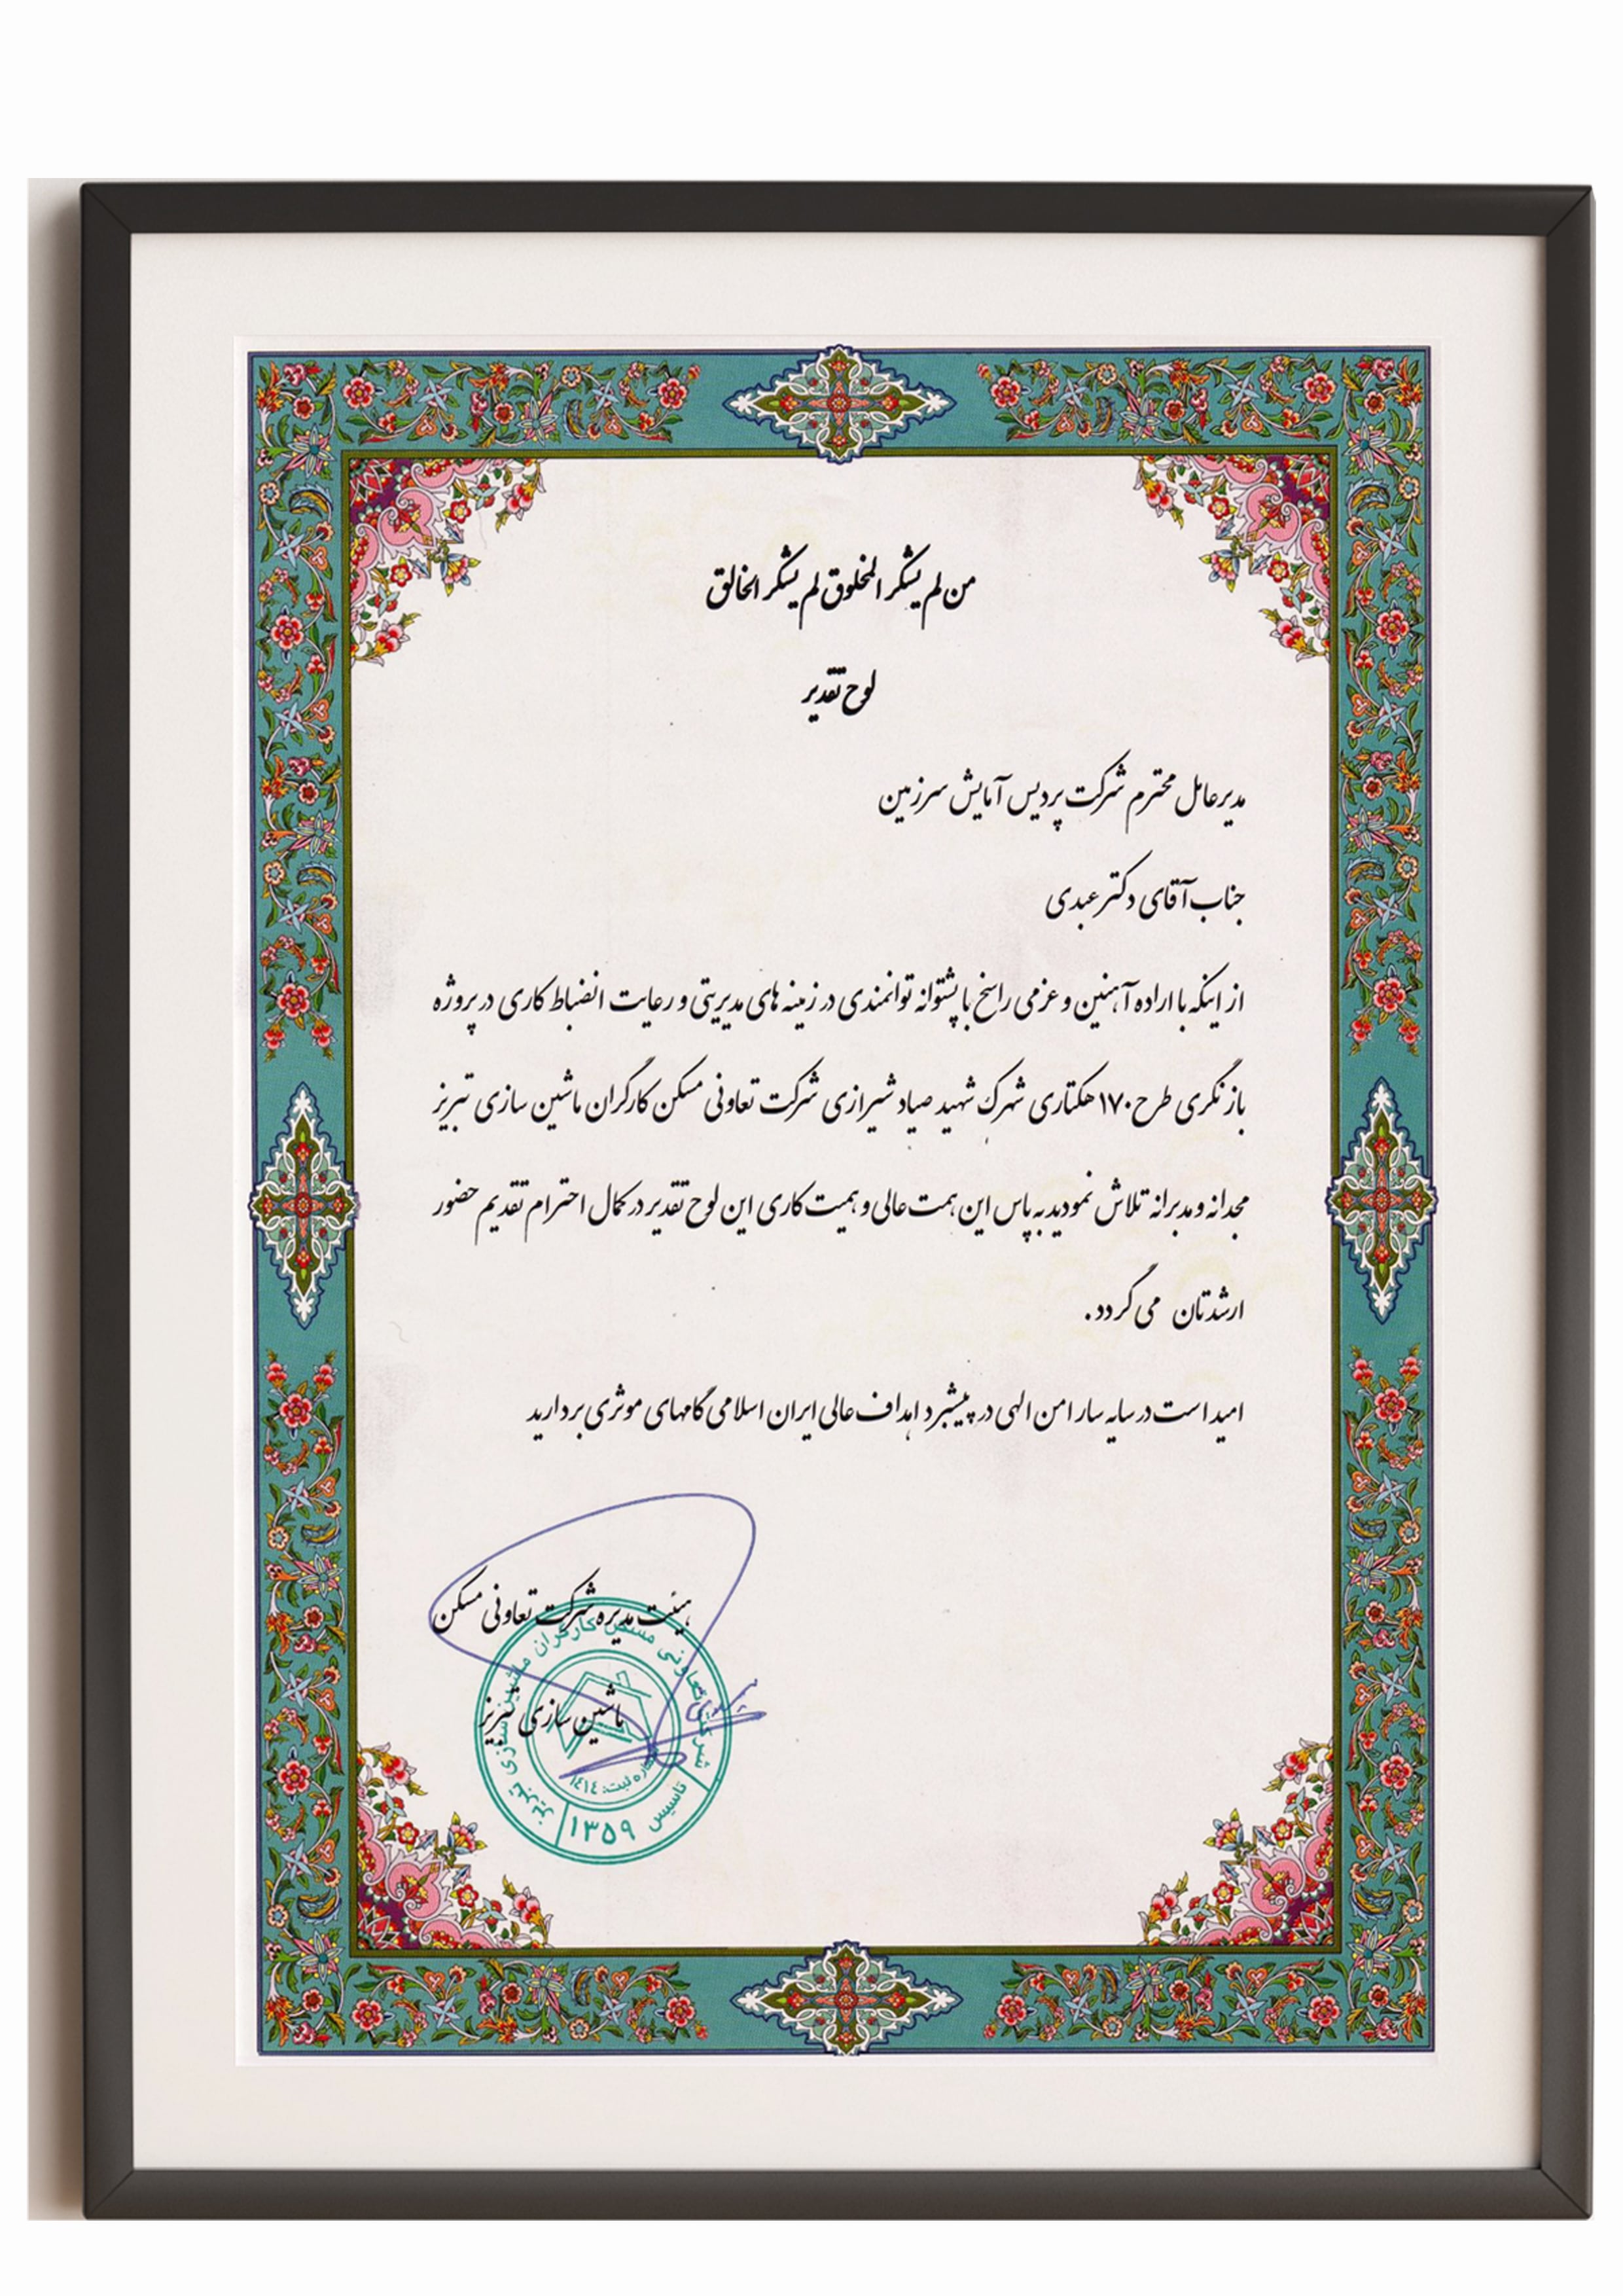 من لم یشکر المخلوق لم یشکر الخالق
لوح تقدیر
مدیرعامل محترم شرکت پردیس آمایش سرزمین
جناب آقای دکتر عبدی
از اینکه با اراده آهنین و عزمی راسخ با پشتوانه توانمندی در زمینه های مدیریتی و رعایت انضباط کاری در پروژه
بازنگری طرح ۱۷۰ هکتاری شهرک شهید صیاد شیرازی شرکت تعاونی مسکن کارگران ماشین سازی تبریز
مجدانه و مدبرانه تلاش نمودید به پاس این همت عالی و همیت کاری این لوح تقدیر در کمال احترام تقدیم حضور
ارشدتان می گردد .
امید است در سایه سار امن الهی در پیشبرد اهداف عالی ایران اسلامی گامهای موثری بردارید
هیئت مدیره شرکت تعاونی مسکن
ماشین سازی تبریز
شرکت تعاونی مسکن کارگران ماشین سازی تبریز
شماره ثبت: ۱۴۱۴
تاسیس ۱۳۵۹